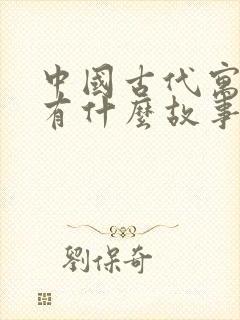 中國古代寓
有什麼故事
劉保奇